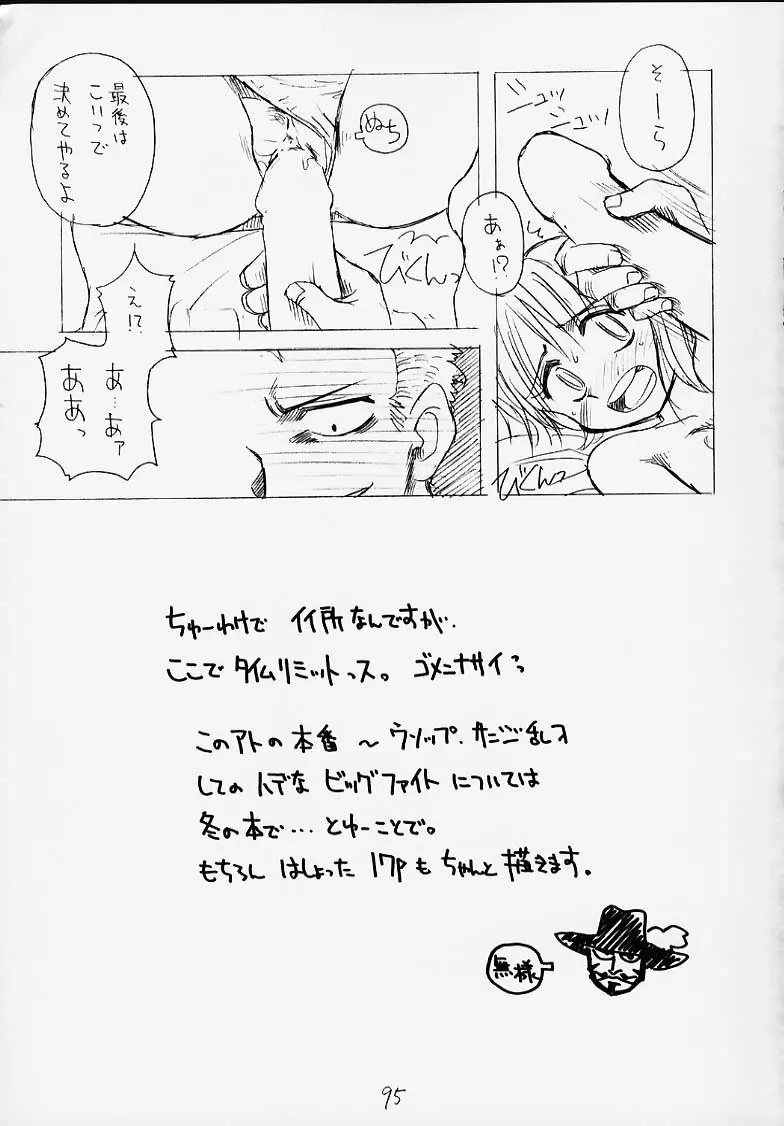 そーら
ニュッ
ニュッ
あぁ!?
びくんっ
最後は
こいつで
決めてやるよ
ぬち
びくんっ
え!?
あ…あァ
ああっ
ちゅーわけで イイ所なんですが、
ここでタイムリミットっス。ゴメンナサイっ
このアトの本番 ～ ウソップ、サンジ乱入
しての ハデな ビッグファイト については
冬の本で… とゆーことで。
もちろん はしょった 17Pも ちゃんと 描きます。
無様
95